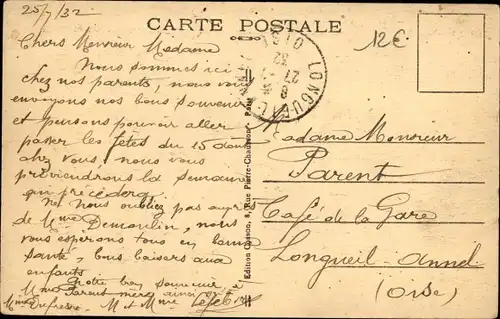 25/7/32
CARTE POSTALE
12€
Chers Monsieur Madame
Nous sommes ici
chez nos parents, nous vous
envoyons nos bons souvenirs
et pensons pouvoir aller
passer les fêtes du 15 août
chez vous, nous vous
préviendrons la semaine
qui précédera
Ne nous oubliez pas auprès
de Mme Demoulin, nous
vous espérons tous en bonne
santé, bons baisers aux
enfants
Notre bon souvenir
Mme Parent mère ainsi
Mme Dufresne. M et Mme
LONGUEIL
27
32
OISE
Edition Gosson, 8, Rue Pierre-Chausson, Paris
Madame Monsieur
Parent
Café de la Gare
Longueil-Annel
(Oise)